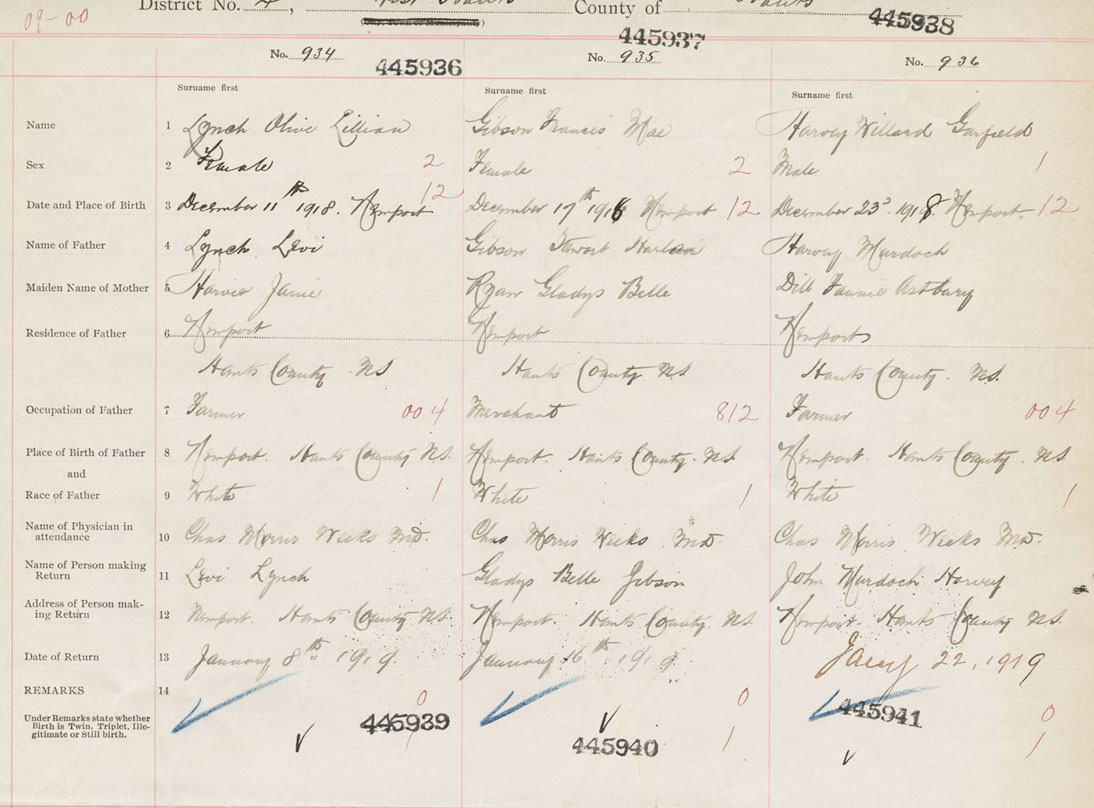 09-00 District No. 2, West Hants County of Hants
445938
445937
No. 934 No. 935 No. 936
445936
Surname first Surname first Surname first
Name 1 Lynch Olive Lillian Gibson Francis Mae Harvey Willard Garfield
Sex 2 Female 2 Female 2 Male 1
Date and Place of Birth 3 December 11th 1918. Newport 12 December 17th 1918 Newport 12 December 23d 1918 Newport 12
Name of Father 4 Lynch Levi Gibson Stewart Harlan Harvey Murdoch
Maiden Name of Mother 5 Harvie Janie Ryan Gladys Belle Dill Fannie Astbury
Residence of Father 6 Newport Newport Newport
Hants County NS Hants County NS Hants County. NS.
Occupation of Father 7 Farmer 004 Merchant 812 Farmer 004
Place of Birth of Father 8 Newport. Hants County NS. Newport. Hants County. NS Newport. Hants County. NS
and
Race of Father 9 White 1 White 1 White 1
Name of Physician in
attendance 10 Chas Morris Weeks Md. Chas Morris Weeks Md Chas Morris Weeks Md.
Name of Person making
Return 11 Levi Lynch Gladys Belle Gibson John Murdoch Harvey
Address of Person mak-
ing Return 12 Newport Hants County NS. Newport. Hants County. NS Newport. Hants County NS
Date of Return 13 January 8th 1919. January 16th 1919 Jany 22, 1919
REMARKS 14 0 0 0
Under Remarks state whether
Birth is Twin, Triplet, Ille-
gitimate or Still birth.
445939 1 445940 1 445941 1